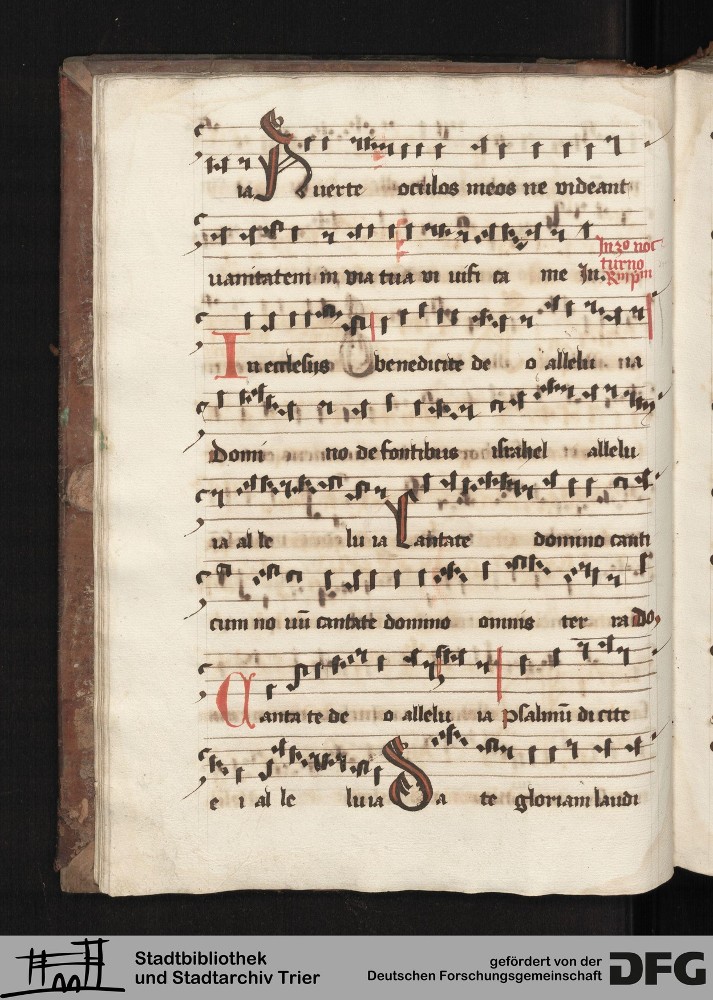 ia Auerte oculos meos ne videant
uanitatem in via tua vi uifi ca me In.
In 2o noc
turno
In ecclesijs benedicite de o allelu ia
Domi no de fontibus israhel allelu
ia al le lu ia Cantate domino canti
cum no uū cantate domino omnis ter ra Do
Canta te de o allelu ia psalmū dicite
e i al le luia Da te gloriam laudi
Stadtbibliothek
und Stadtarchiv Trier
gefördert von der
Deutschen Forschungsgemeinschaft
DFG